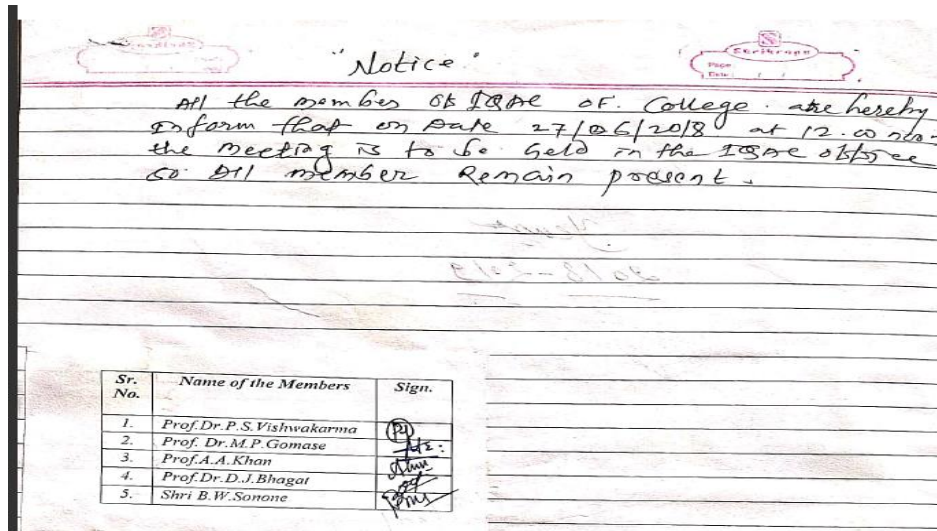 "Notice"
Shrikrupa
Page:
Date: / /
All the member of IQAC OF. College. are hereby
inform that on Date 27/06/2018 at 12.00 noo-
the meeting is to be held in the IQAC office
so All member Remain present.
2018-2019
Sr. No. Name of the Members Sign.
1. Prof.Dr.P.S.Vishwakarma
2. Prof. Dr.M.P.Gomase
3. Prof.A.A.Khan
4. Prof.Dr.D.J.Bhagat
5. Shri B.W.Sonone